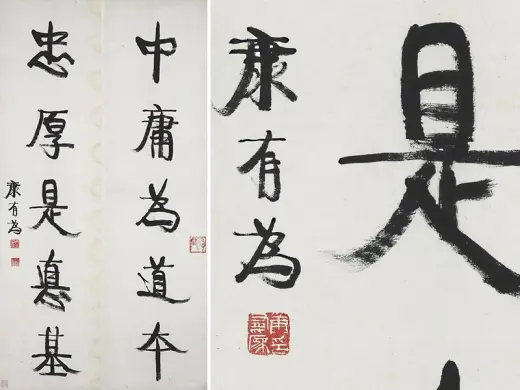 中庸為道本
忠厚是悳基
康有為
是
康有為